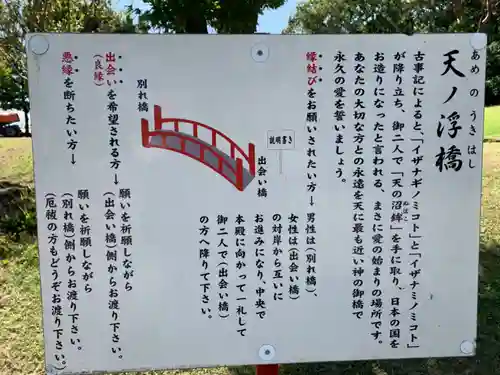 天ノ浮橋
あめ の うき はし
古事記によると、「イザナギノミコト」と「イザナミノミコト」
が降り立ち、御二人で「天の沼鉾」を手に取り、日本の国を
ぬぼこ
お造りになったと言われる、まさに愛の始まりの場所です。
あなたの大切な方との永遠を天に最も近い神の御橋で
永久の愛を誓いましょう。
縁結びをお願いされたい方→男性は(別れ橋)、
女性は(出会い橋)
の対岸から互いに
お進みになり、中央で
本殿に向かって一礼して
御二人で(出会い橋)
の方へ降りて下さい。
説明書き
出会い橋
別れ橋
出会いを希望される方→願いを祈願しながら
(良縁)
(出会い橋)側からお渡り下さい。
悪縁を断ちたい方→願いを祈願しながら
(別れ橋)側からお渡り下さい。
(厄祓の方もどうぞお渡り下さい。)